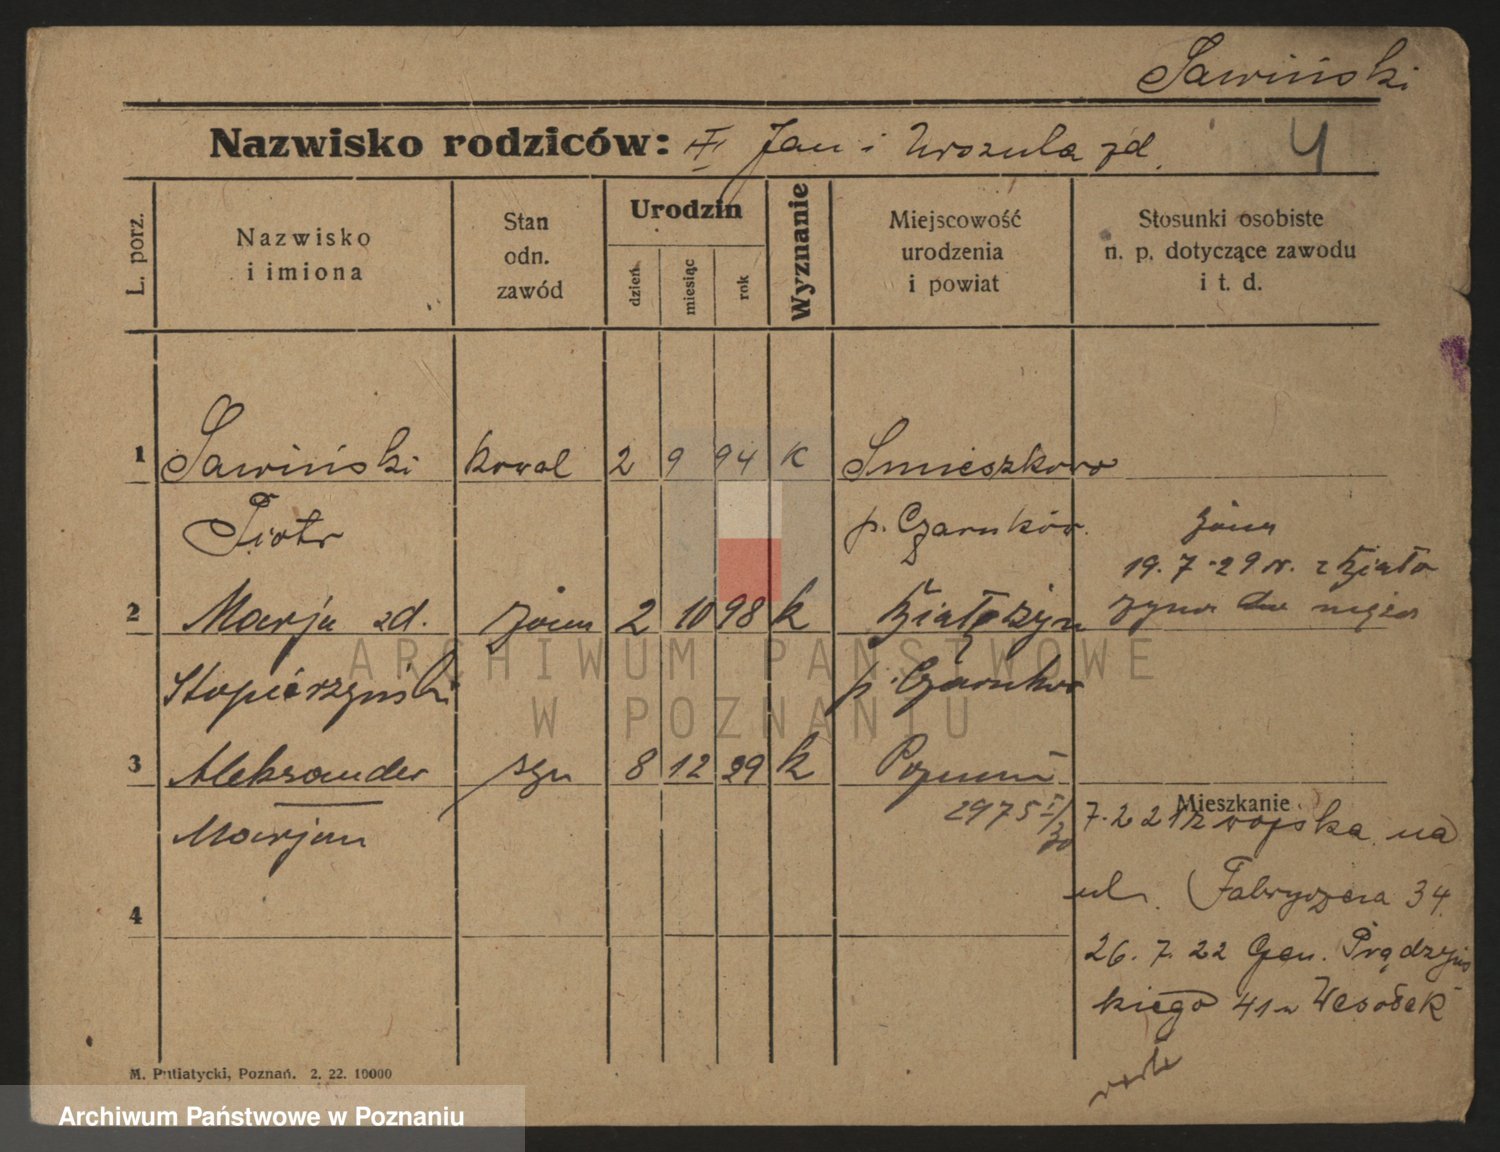 Sawiński
Nazwisko rodziców: Jan i Urszula zd. 4
L. porz.
Nazwisko
i imiona
Stan
odn.
zawód
Urodzin
dzień
miesiąc
rok
Wyznanie
Miejscowość
urodzenia
i powiat
Stosunki osobiste
n. p. dotyczące zawodu
i t. d.
1 Sawiński kowal 2 9 94 k Śmieszkowo
Piotr p. Czarnków
żona
19.7.29 r. z Białę
żyna do męża
2 Marja zd. żona 2 10 98 k Białężyn
p. Czarnków
3 Aleksander syn 8 12 29 k Poznań
Marjan
2975 I/30
Mieszkanie
7.2 22 z wojska na
ul. Fabryczna 34.
26.7.22 Gen. Prądzyńs
kiego 41
4
M. Putiatycki, Poznań. 2. 22. 10000
ARCHIWUM PAŃSTWOWE
W POZNANIU
Archiwum Państwowe w Poznaniu